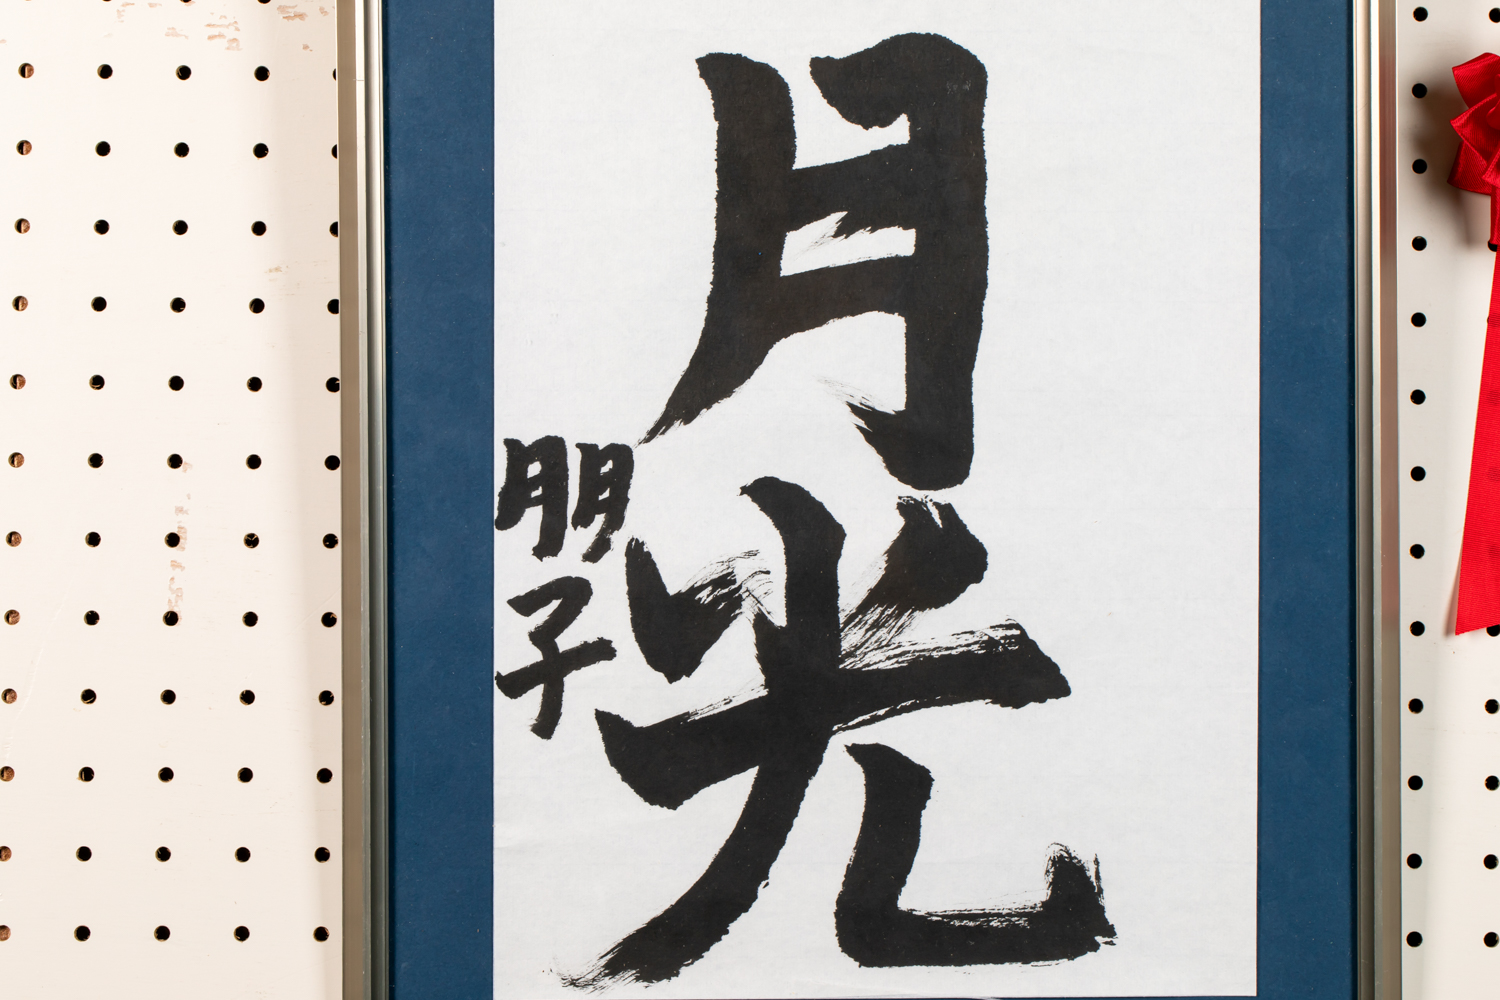 月光
朋子